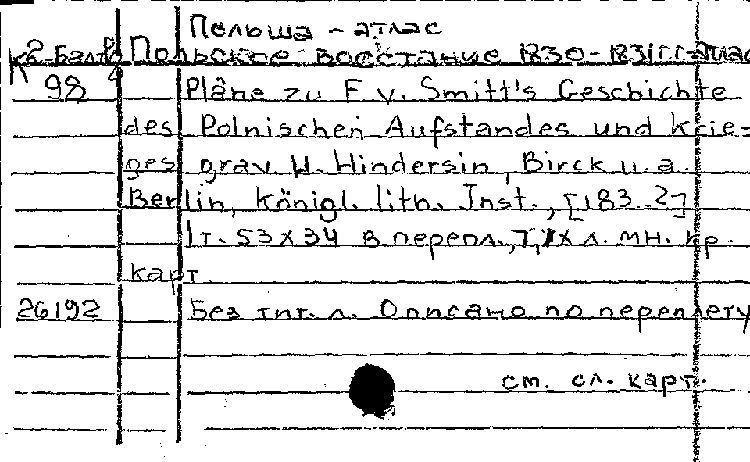 Польша - атлас
К2-Балт Польское восстание 1830-1831 гг-атлас
98 Pläne zu F. v. Smitt's Geschichte
des Polnischen Aufstandes und Krie=
ges grav. H. Hindersin, Birck u. a.
Berlin, Königl. lith. Inst., [183..?]
1т. 53x34 в перепл., л. мн. кр.
карт.
26192 Без тит. л. Описано по переплету
см. сл. карт.